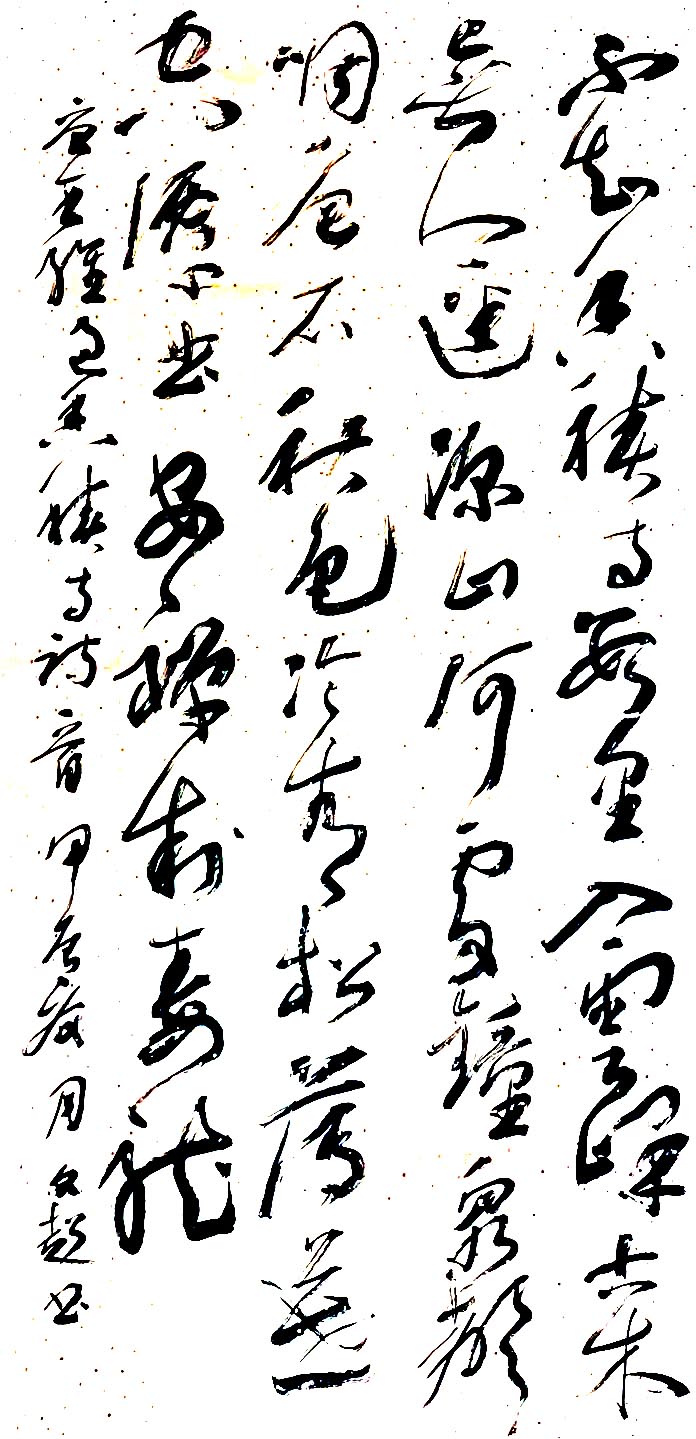 不知香積寺數里入雲峰古木
無人逕深山何處鐘泉聲
咽危石秋色冷青松薄暮
空潭曲安禪制毒龍
唐王維過香積寺詩首甲辰夏月文超書